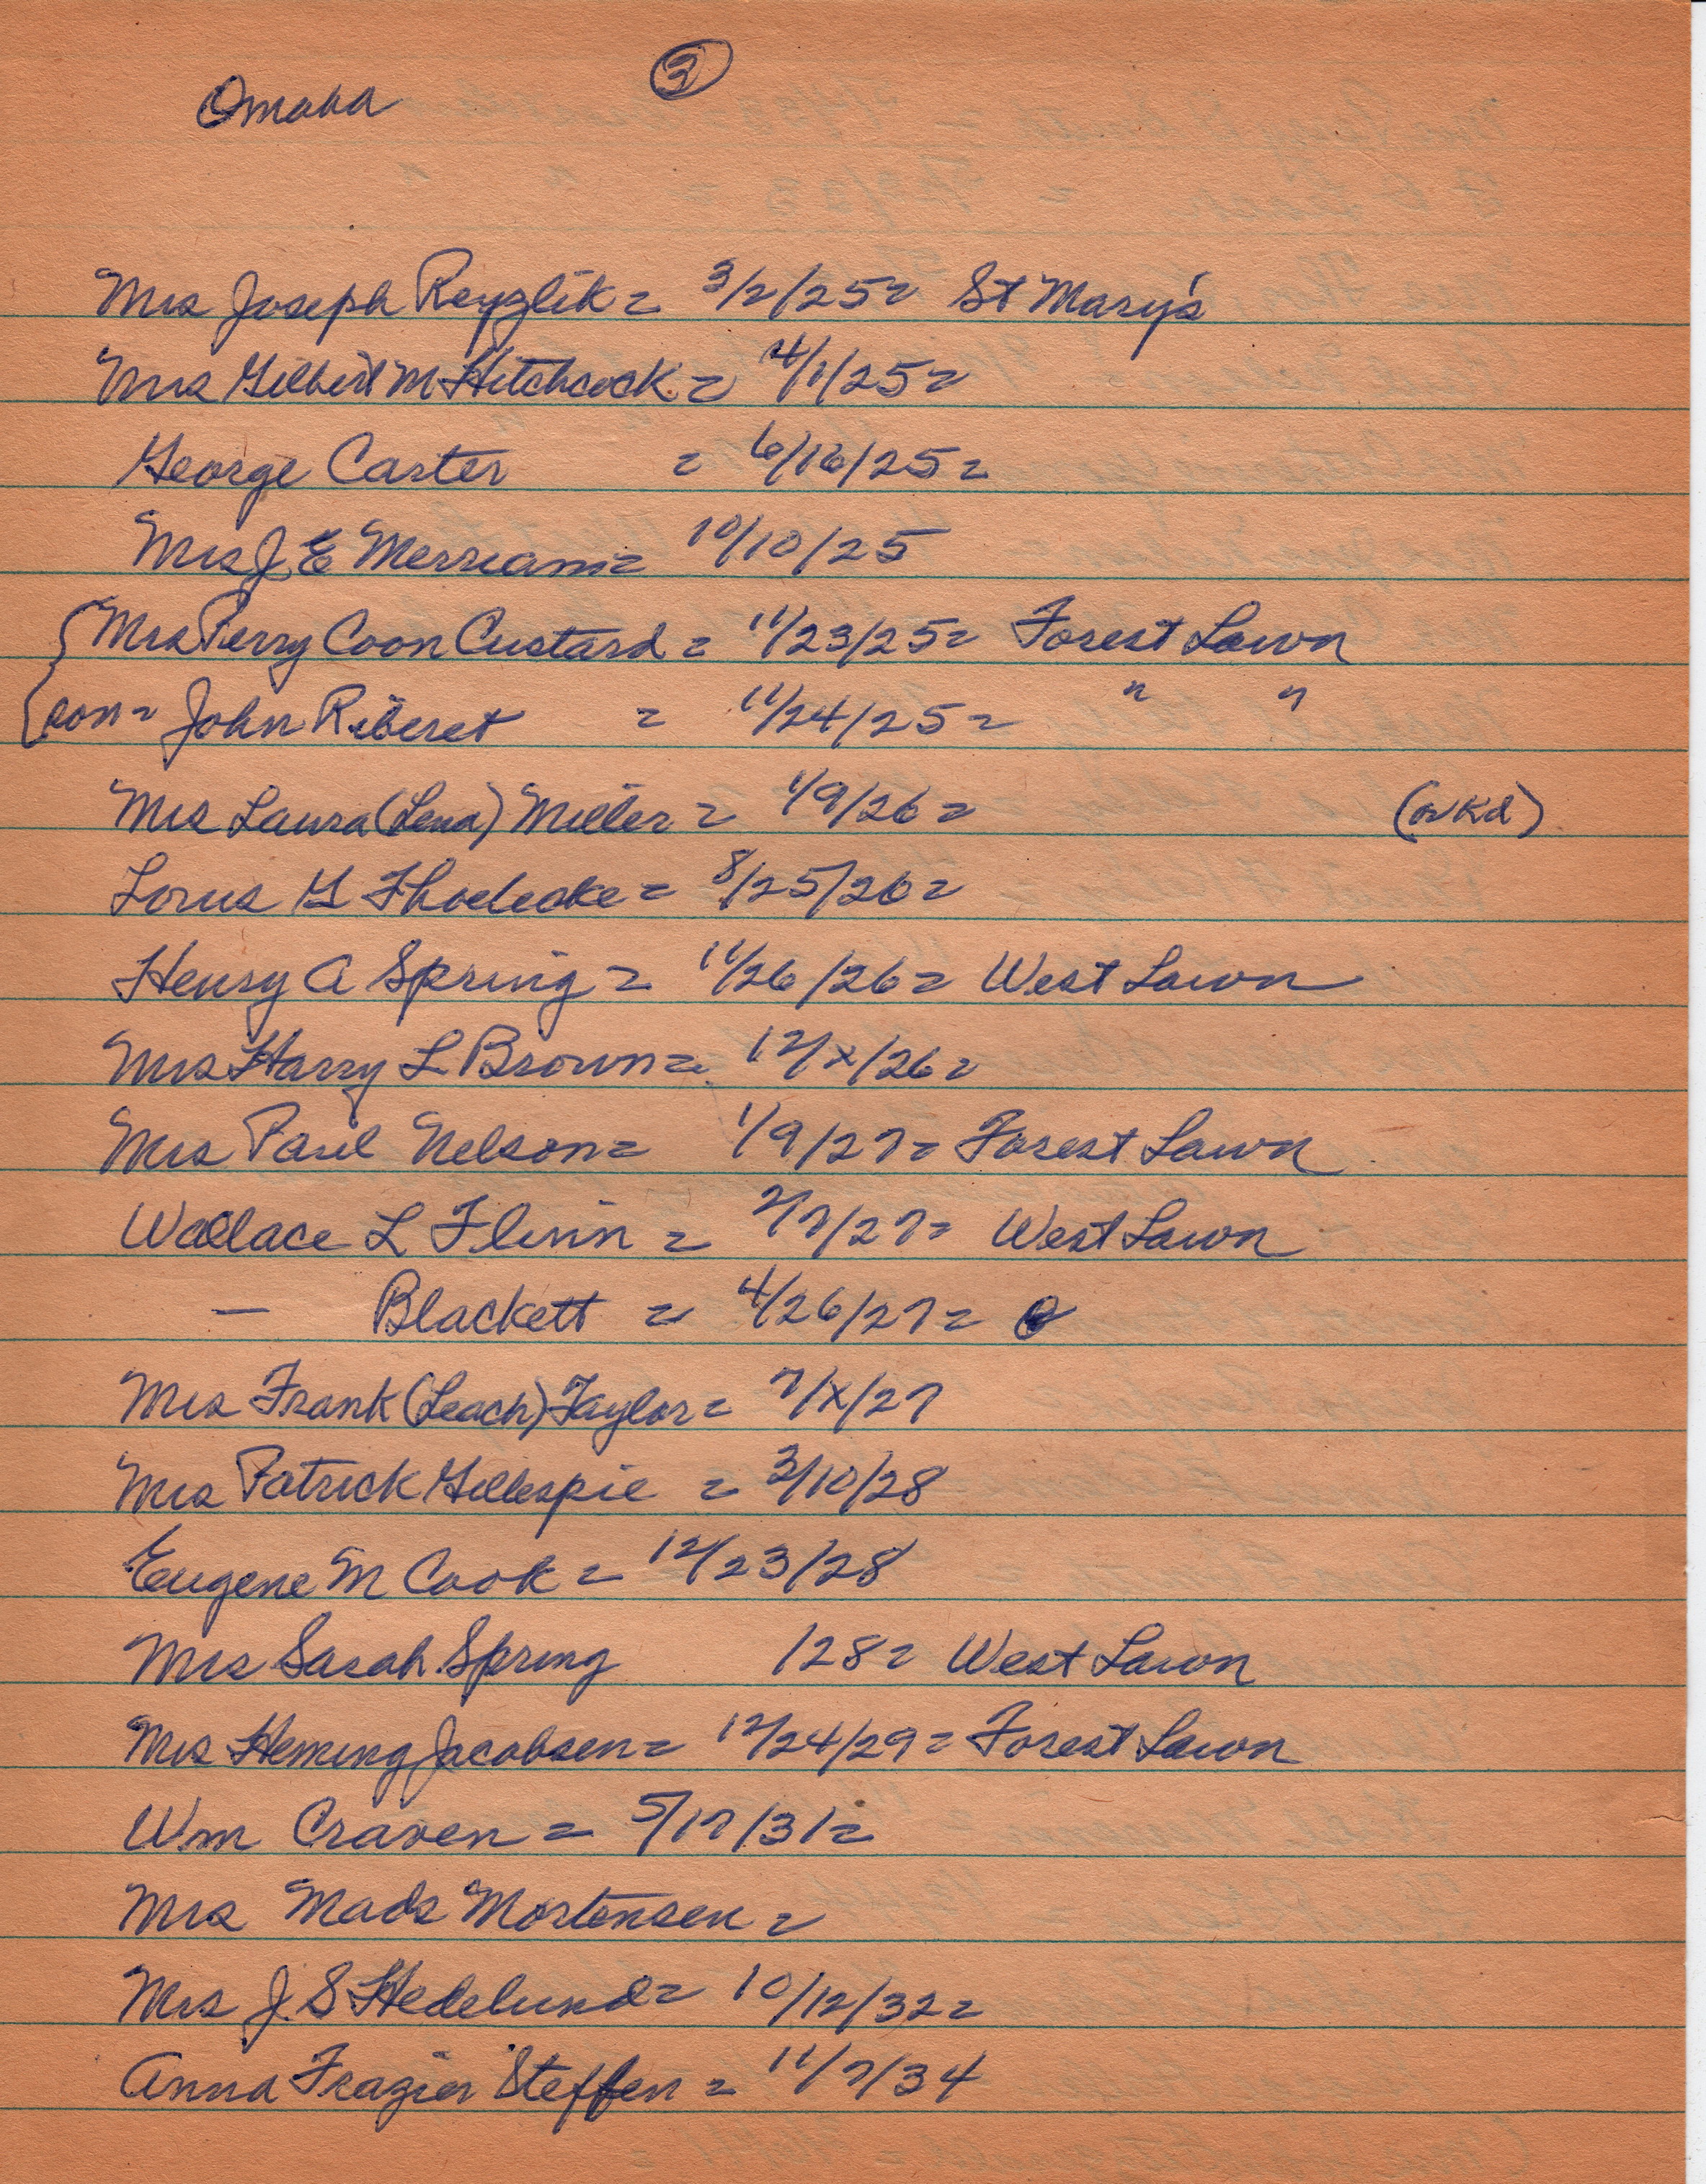 Omaha ③
Mrs Joseph Reyzlik = 3/2/25 = St Mary's
Mrs Gilbert M Hitchcock = 4/1/25 =
George Carter = 6/16/25 =
Mrs J E Merriam = 10/10/25
Mrs Perry Coon Custard = 11/23/25 = Forest Lawn
son = John Riberet = 11/24/25 = " "
Mrs Laura (Lena) Miller = 1/9/26 = (ovkd)
Lorus G Thoelecke = 8/25/26 =
Henry A Spring = 11/26/26 = West Lawn
Mrs Harry L Brown = 12/x/26 =
Mrs Paul Nelson = 1/9/27 = Forest Lawn
Wallace L Flinn = 2/7/27 = West Lawn
— Blackett = 4/26/27 =
Mrs Frank (Leach) Taylor = 7/x/27
Mrs Patrick Gillespie = 3/10/28
Eugene M Cook = 12/23/28
Mrs Sarah Spring /28 = West Lawn
Mrs Heming Jacobsen = 12/24/29 = Forest Lawn
Wm Craven = 5/17/31 =
Mrs Mads Mortensen =
Mrs J. S Hedelund = 10/12/32 =
Anna Frazier Steffen = 11/7/34